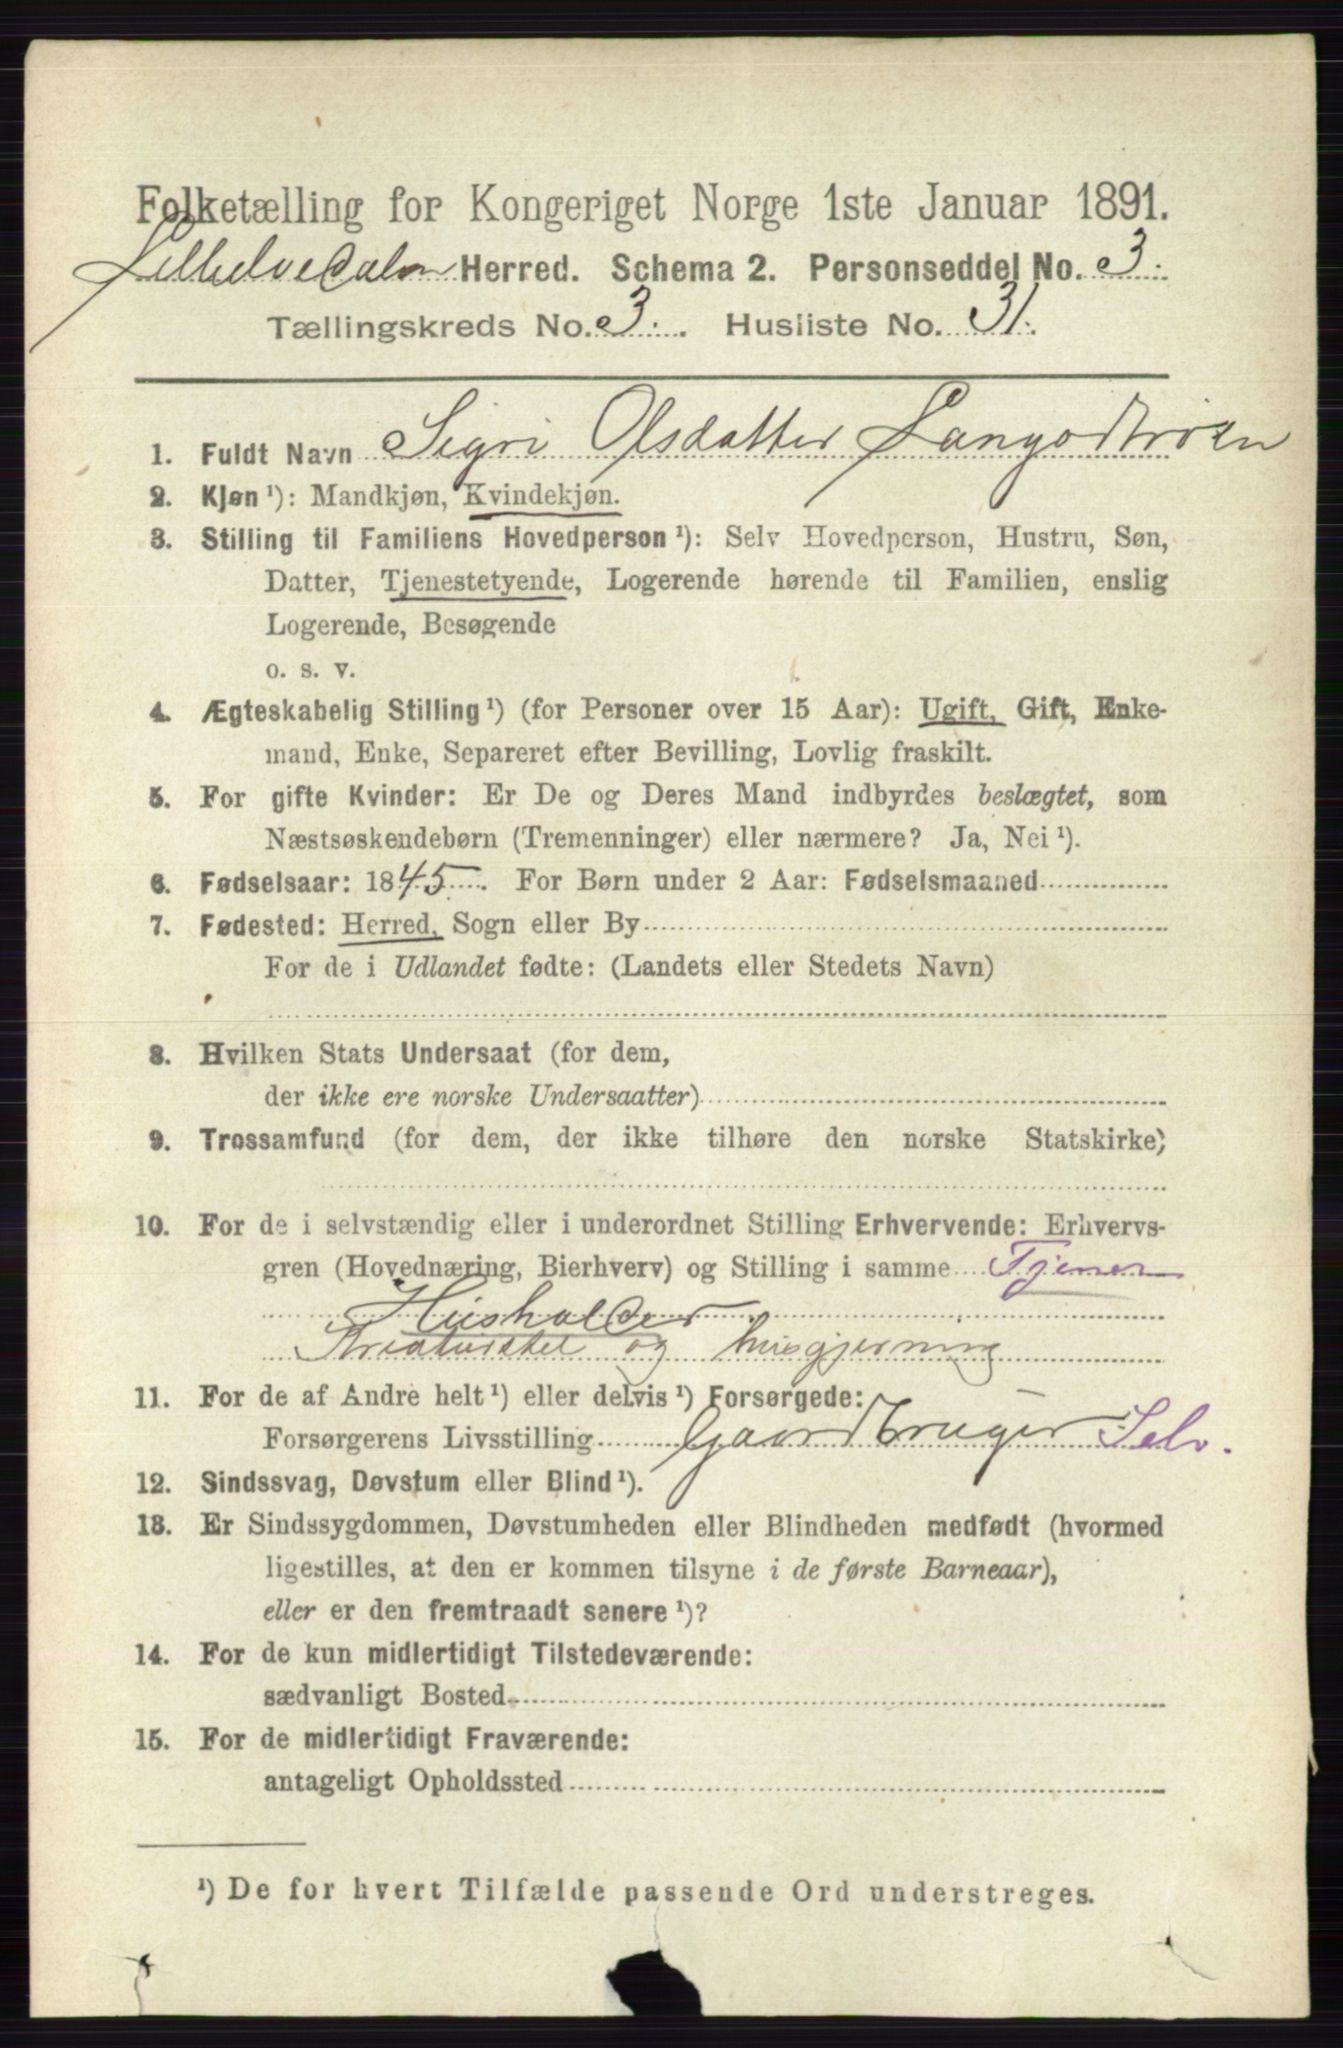 Folketælling for Kongeriget Norge 1ste Januar 1891.
Lilleelvedalen Herred. Schema 2. Personseddel No. 3.
Tællingskreds No. 3. Husliste No. 31.
1. Fuldt Navn Sigri Olsdatter Langodtrøen
2. Kjøn ¹): Mandkjøn, Kvindekjøn.
3. Stilling til Familiens Hovedperson ¹): Selv Hovedperson, Hustru, Søn,
Datter, Tjenestetyende, Logerende hørende til Familien, enslig
Logerende, Besøgende
o. s. v.
4. Ægteskabelig Stilling ¹) (for Personer over 15 Aar): Ugift, Gift, Enke-
mand, Enke, Separeret efter Bevilling, Lovlig fraskilt.
5. For gifte Kvinder: Er De og Deres Mand indbyrdes beslægtet, som
Næstsøskendebørn (Tremenninger) eller nærmere? Ja, Nei ¹).
6. Fødselsaar: 1845. For Børn under 2 Aar: Fødselsmaaned
7. Fødested: Herred, Sogn eller By
For de i Udlandet fødte: (Landets eller Stedets Navn)
8. Hvilken Stats Undersaat (for dem,
der ikke ere norske Undersaatter)
9. Trossamfund (for dem, der ikke tilhøre den norske Statskirke)
10. For de i selvstændig eller i underordnet Stilling Erhvervende: Erhvervs-
gren (Hovednæring, Bierhverv) og Stilling i samme Tjener
Husholder
Kreaturstel og husgjerning
11. For de af Andre helt ¹) eller delvis ¹) Forsørgede:
Forsørgerens Livsstilling Gaardbruger Selv.
12. Sindssvag, Døvstum eller Blind ¹).
13. Er Sindssygdommen, Døvstumheden eller Blindheden medfødt (hvormed
ligestilles, at den er kommen tilsyne i de første Barneaar),
eller er den fremtraadt senere ¹)?
14. For de kun midlertidigt Tilstedeværende:
sædvanligt Bosted
15. For de midlertidigt Fraværende:
antageligt Opholdssted
¹) De for hvert Tilfælde passende Ord understreges.